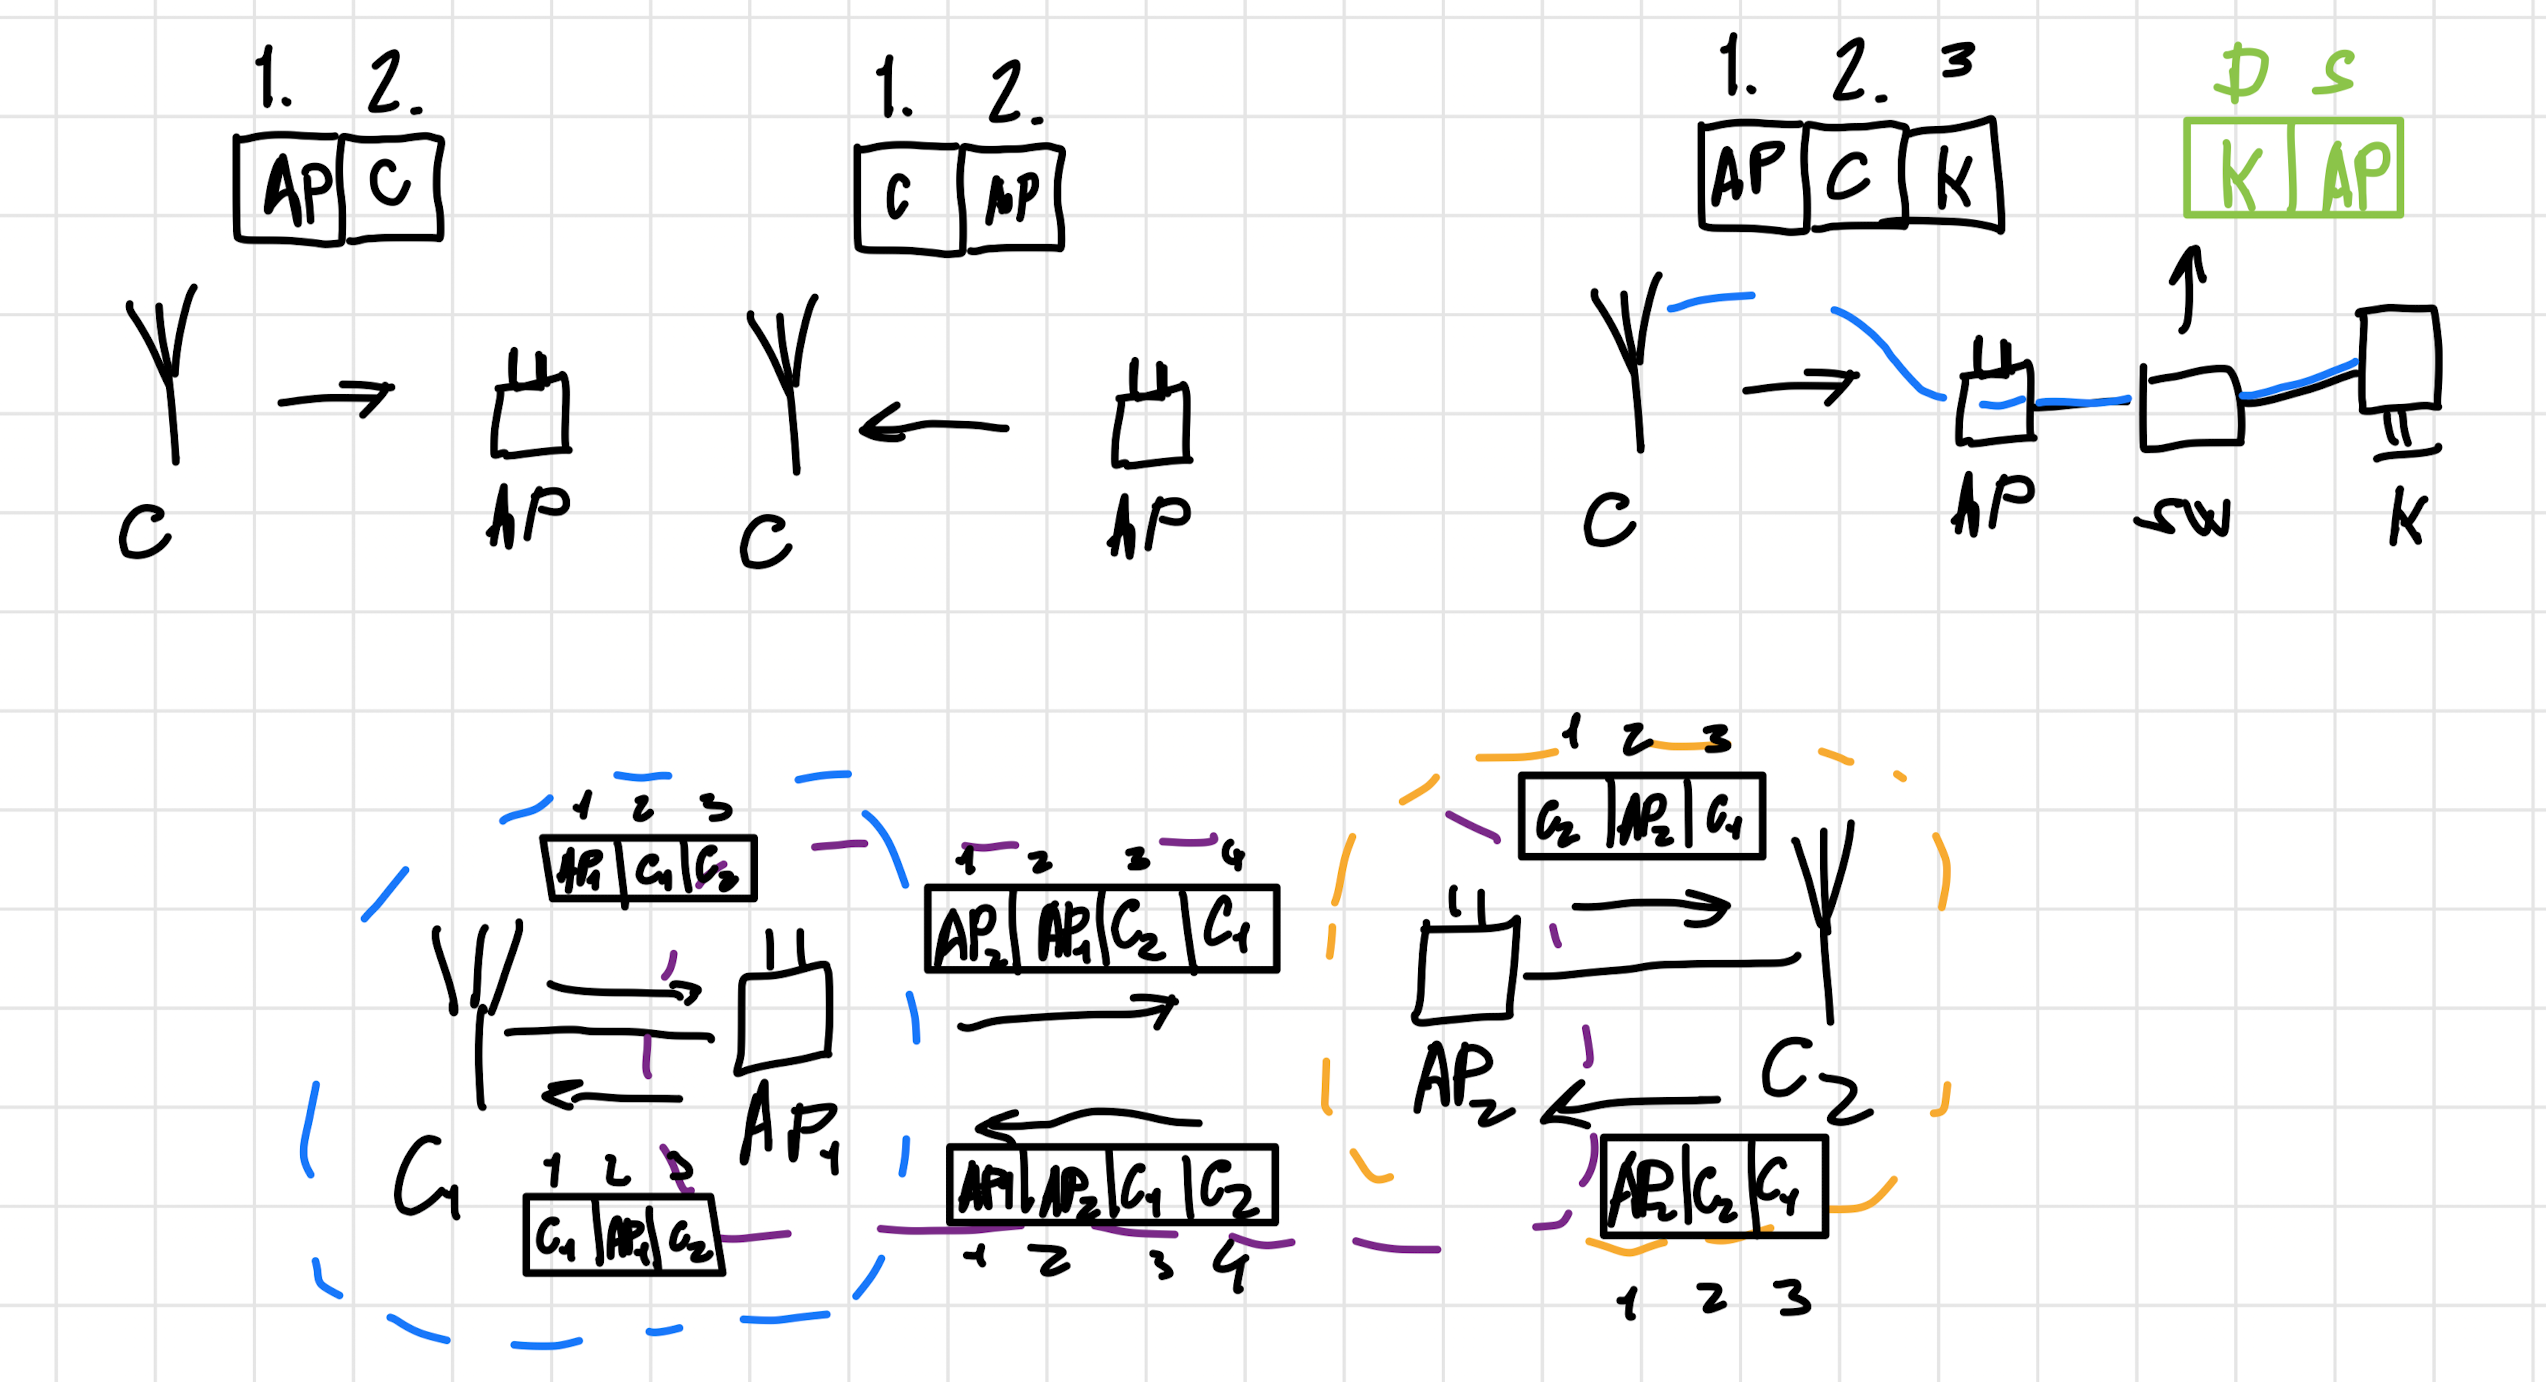 1. 2.
AP C
C
AP
1. 2.
C AP
C
AP
1. 2. 3
AP C K
D S
K AP
C
AP
SW
K
1 2 3
AP1 C1 C2
C1
AP1
1 2 3
C1 AP1 C2
1 2 3 4
AP2 AP1 C2 C1
AP1 AP2 C1 C2
1 2 3 4
1 2 3
C2 AP2 C1
AP2
C2
AP2 C2 C1
1 2 3